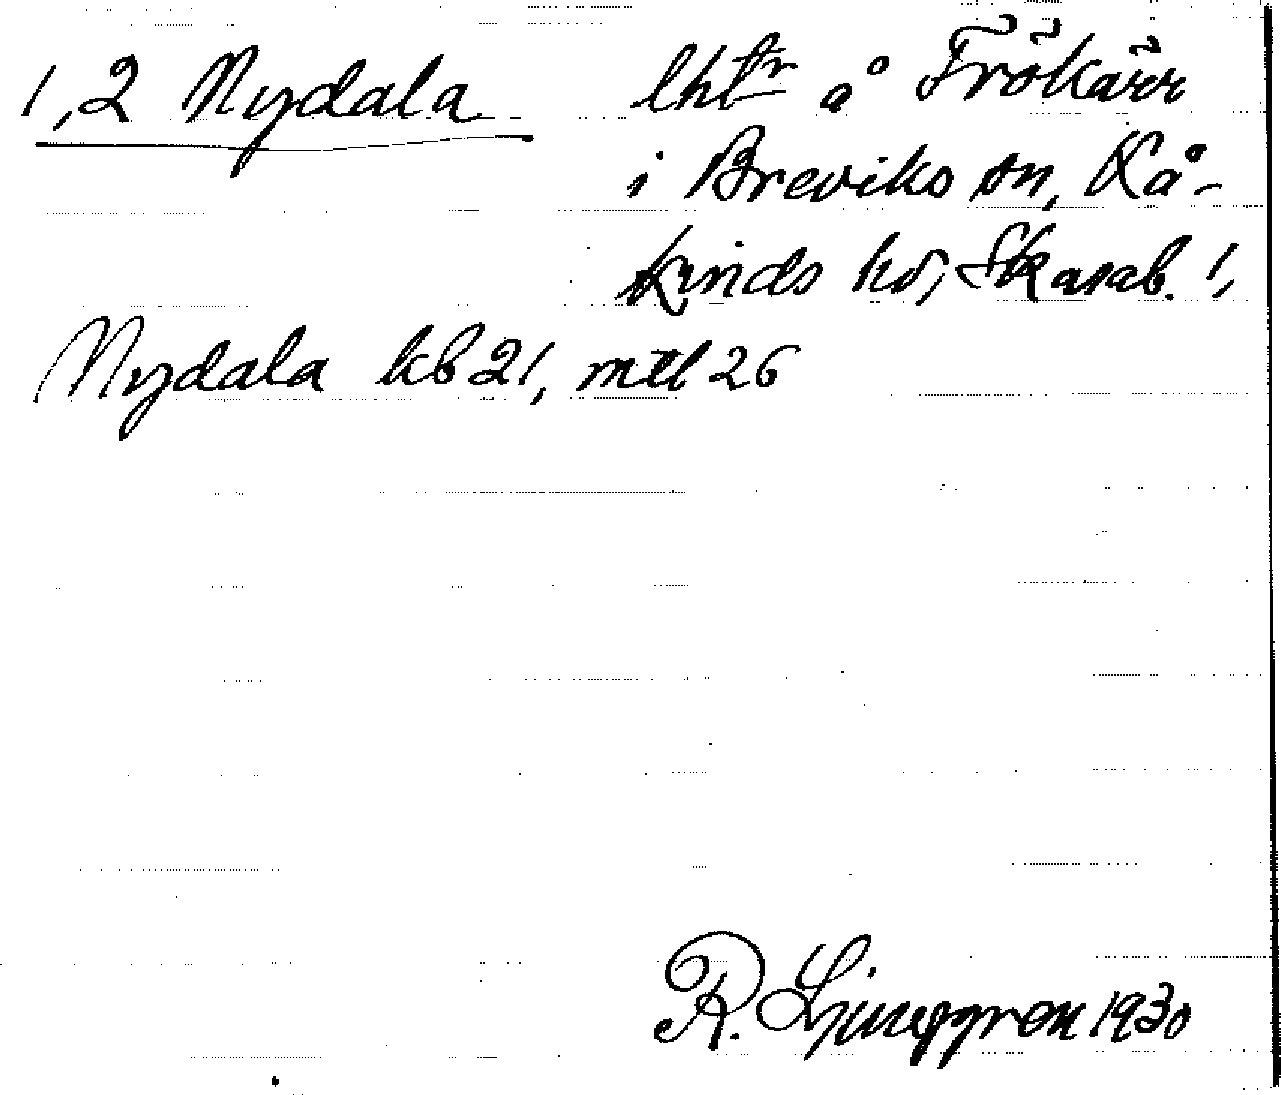 1,2 Nydala lht^r å Frökärr
i Breviks sn, Kå-
kinds hd, Skarab. l,
Nydala kb 21, mtl 26
R. Ljunggren 1930